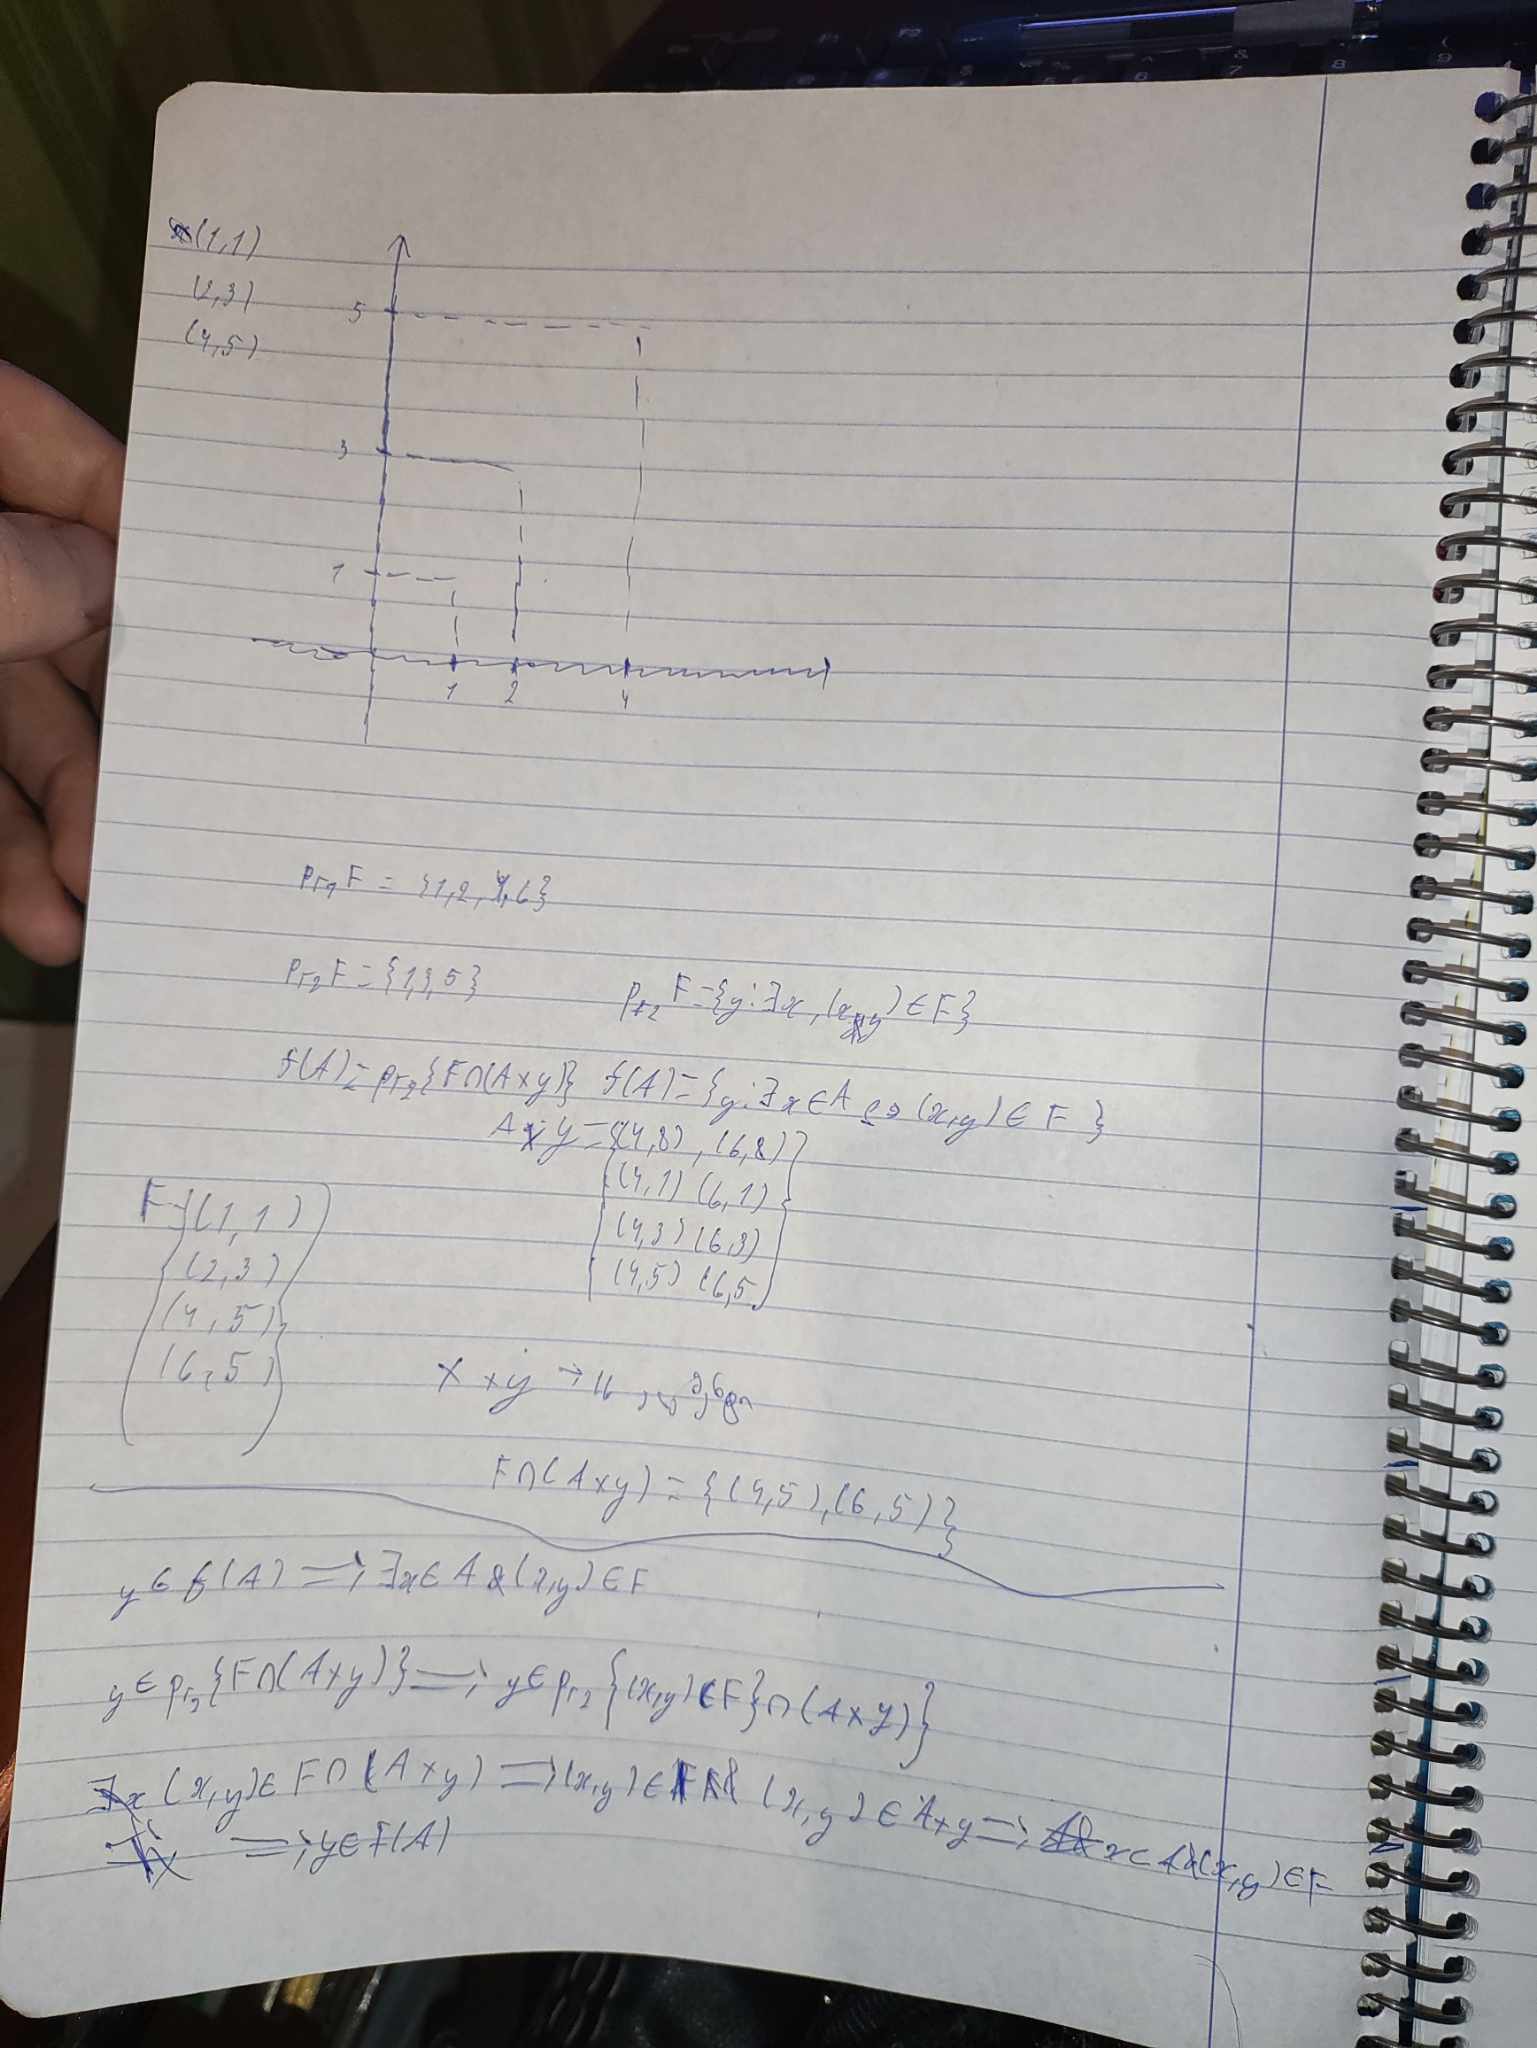 (1,1)
(2,3)
(4,5)
5
3
1
1 2 4
pr₁ F = {1,2,4,6}
pr₂ F = {1,3,5} pr₂ F = {y: ∃x, (x,y) ∈ F}
f(A) = pr₂{F∩(A×y)} f(A) = {y: ∃x∈A (x,y) ∈ F}
A×y = {(4,8), (6,8)
(4,1) (6,1)
(4,3) (6,3)
(4,5) (6,5
F={(1,1)
(2,3)
(4,5)
(6,5)
X × y →
F∩(A×y) = {(4,5),(6,5)}
y ∈ f(A) ⟹ ∃x∈A & (x,y) ∈ F
y ∈ pr₂{F∩(A×y)} ⟹ y ∈ pr₂{(x,y) ∈ F}∩(A×y)}
(x,y) ∈ F∩(A×y) ⟹ (x,y) ∈ F & (x,y) ∈ A×y ⟹ x ∈ A & (x,y) ∈ F
⟹ y ∈ f(A)